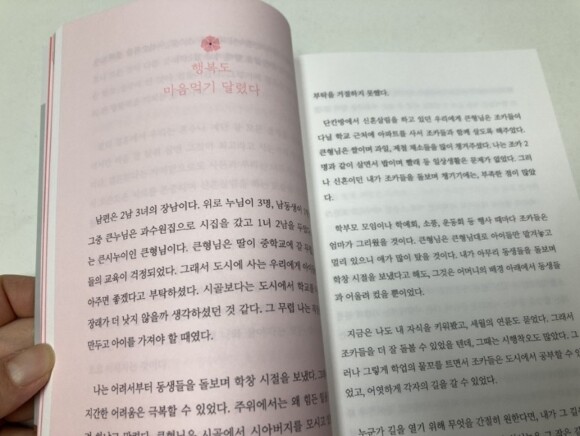 행복도
마음먹기 달렸다
남편은 2남 3녀의 장남이다. 위로 누님이 3명, 남동생이
그중 큰누님은 과수원집으로 시집을 갔고 1녀 2남을
는 큰시누이인 큰형님이다. 큰형님은 딸이 중학교에 갈
들의 교육이 걱정되었다. 그래서 도시에 사는 우리에게
아주면 좋겠다고 부탁하셨다. 시골보다는 도시에서 학교를
장래가 더 낫지 않을까 생각하셨던 것 같다. 그 무렵 나는
만두고 아이를 가져야 할 때였다.
나는 어려서부터 동생들을 돌보며 학창 시절을 보냈다.
지간한 어려움은 극복할 수 있었다. 주위에서는 왜 힘든
큰형님은 시골에서 시아버지를 모시고
부탁을 거절하지 못했다.
단칸방에서 신혼살림을 하고 있던 우리에게 큰형님은 조카들이
다닐 학교 근처에 아파트를 사서 조카들과 함께 살도록 해주었다.
큰형님은 쌀이며 과일, 제철 채소들을 많이 챙겨주셨다. 나는 조카 2
명과 같이 살면서 밥이며 빨래 등 일상생활은 문제가 없었다. 그러
나 신혼이던 내가 조카들을 돌보며 챙기기에는, 부족한 점이 많았
다.
학부모 모임이나 학예회, 소풍, 운동회 등 행사 때마다 조카들은
엄마가 그리웠을 것이다. 큰형님은 큰형님대로 아이들만 맡겨놓고
멀리 있으니 애가 많이 탔을 것이다. 내가 아무리 동생들을 돌보며
학창 시절을 보냈다고 해도, 그것은 어머니의 배경 아래에서 동생들
과 어울려 컸을 뿐이었다.
지금은 나도 내 자식을 키워봤고, 세월의 연륜도 묻었다. 그래서
조카들을 더 잘 돌볼 수 있었을 텐데, 그때는 시행착오도 많았다.
러나 그렇게 학업의 물꼬를 트면서 조카들은 도시에서 공부할 수
었고, 어엿하게 각자의 길을 갈 수 있었다.
누군가 길을 열기 위해 무엇을 간절히 원한다면, 내가 그